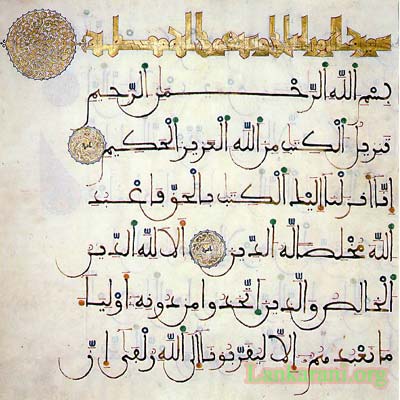 بسم الله الرحمن الرحيم
تنزيل الكتب من الله العزيز الحكيم
إنا أنزلنا إليك الكتب بالحق فاعبد
الله مخلصا له الدين ألا لله الدين
الخالص والذين اتخذوا من دونه أوليا
ما نعبدهم إلا ليقربونا إلى الله زلفى إن
Lankarani.org